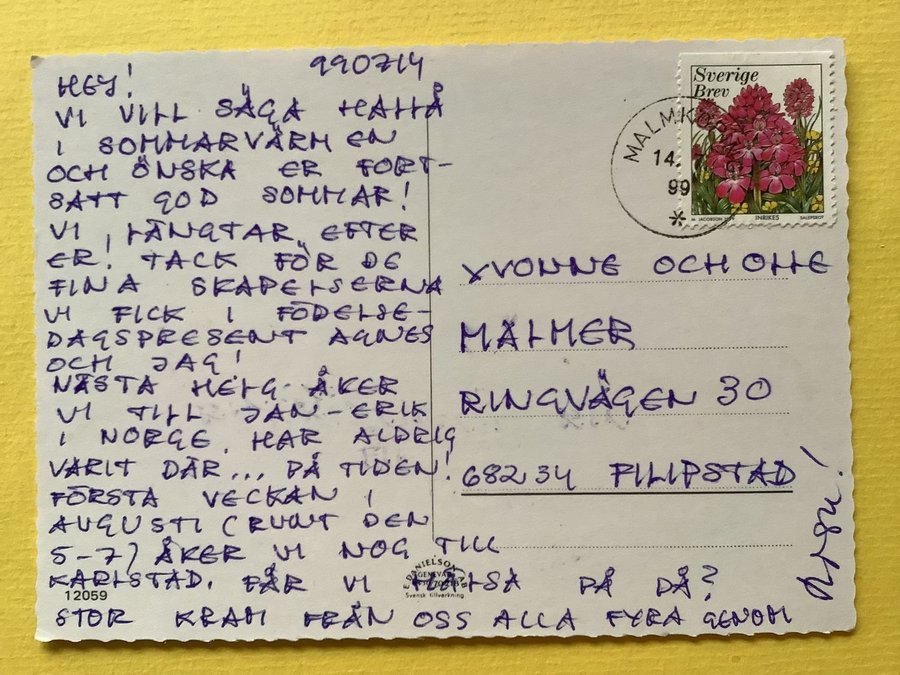 990714
HEJ!
VI VILL SÄGA HALLÅ
I SOMMARVÄRMEN
OCH ÖNSKA ER FORT-
SATT GOD SOMMAR!
VI LÄNGTAR EFTER
ER! TACK FÖR DE
FINA SKAPELSERNA
VI FICK I FÖDELSE-
DAGSPRESENT AGNES
OCH JAG!
NÄSTA HELG ÅKER
VI TILL JAN-ERIK
I NORGE. HAR ALDRIG
VARIT DÄR... PÅ TIDEN!
FÖRSTA VECKAN I
AUGUSTI (RUNT DEN
5-7) ÅKER VI NOG TILL
KARLSTAD. FÅR VI HÄLSA PÅ DÅ?
STOR KRAM FRÅN OSS ALLA FYRA GENOM
12059
E. DANIELSON AB
Svensk tillverkning
Sverige
Brev
M. JACOBSON
INRIKES
SALEPSROT
14.
99
YVONNE OCH OLLE
MALMER
RINGVÄGEN 30
682 34 FILIPSTAD